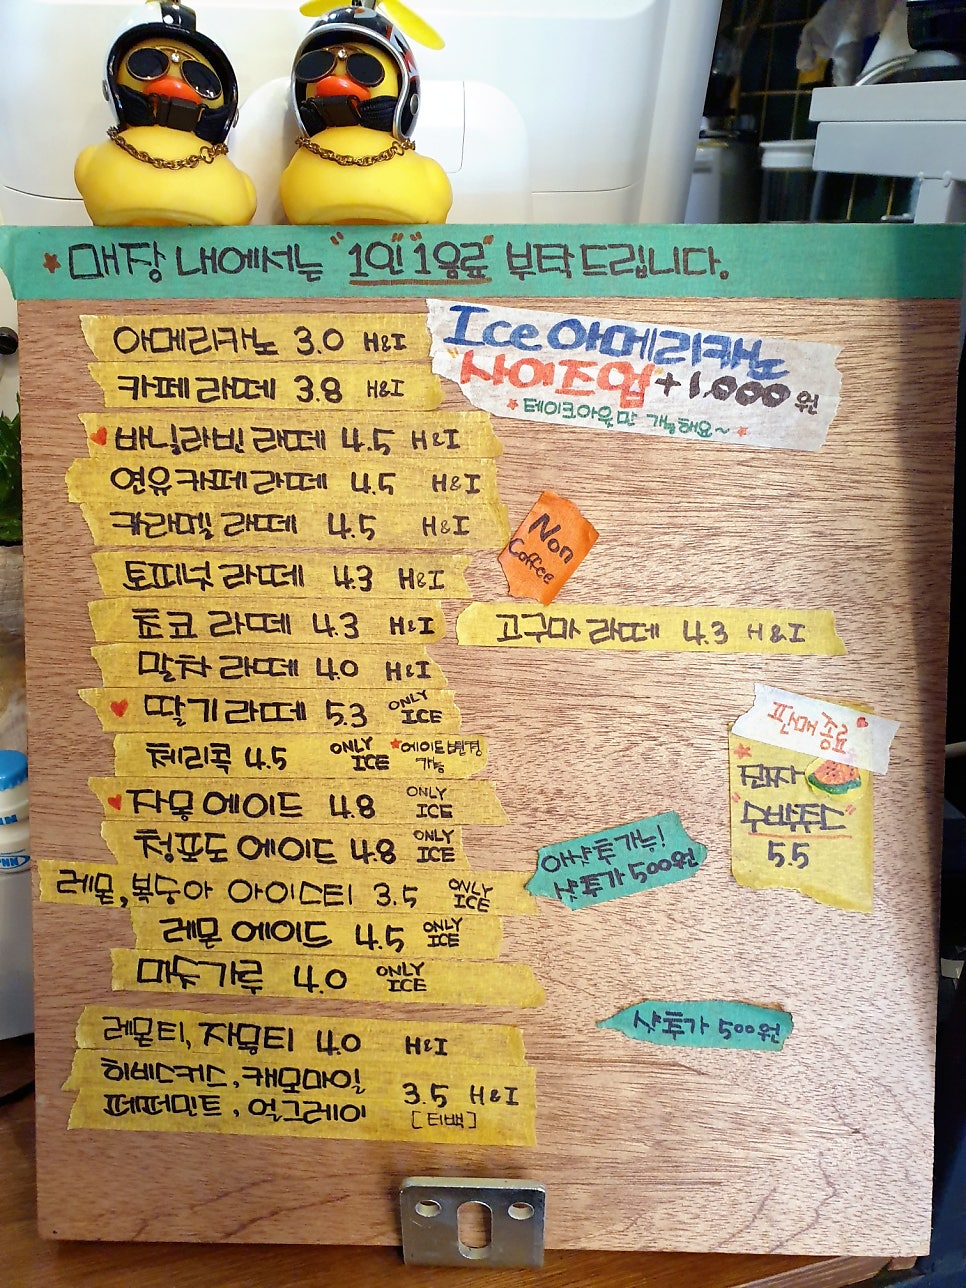 * 매장 내에서는 "1인" "1음료" 부탁드립니다.
아메리카노 3.0 H&I
카페 라떼 3.8 H&I
♥ 바닐라빈 라떼 4.5 H&I
연유 카페 라떼 4.5 H&I
카라멜 라떼 4.5 H&I
토피넛 라떼 4.3 H&I
쵸코 라떼 4.3 H&I
말차 라떼 4.0 H&I
♥ 딸기 라떼 5.3 ONLY ICE
체리콕 4.5 ONLY ICE *에이드변경 가능
♥ 자몽 에이드 4.8 ONLY ICE
청포도 에이드 4.8 ONLY ICE
레몬, 복숭아 아이스티 3.5 ONLY ICE
레몬 에이드 4.5 ONLY ICE
미숫가루 4.0 ONLY ICE
레몬티, 자몽티 4.0 H&I
히비스커스, 캐모마일
페퍼민트, 얼그레이 3.5 H&I
[티백]
Ice 아메리카노
"사이즈업" +1,000원
* 테이크아웃만 가능해요~ *
Non
Coffee
고구마 라떼 4.3 H&I
판매중 ♥
* 진짜
"수박쥬스"
5.5
아샷추가능!
샷추가 500원
샷추가 500원